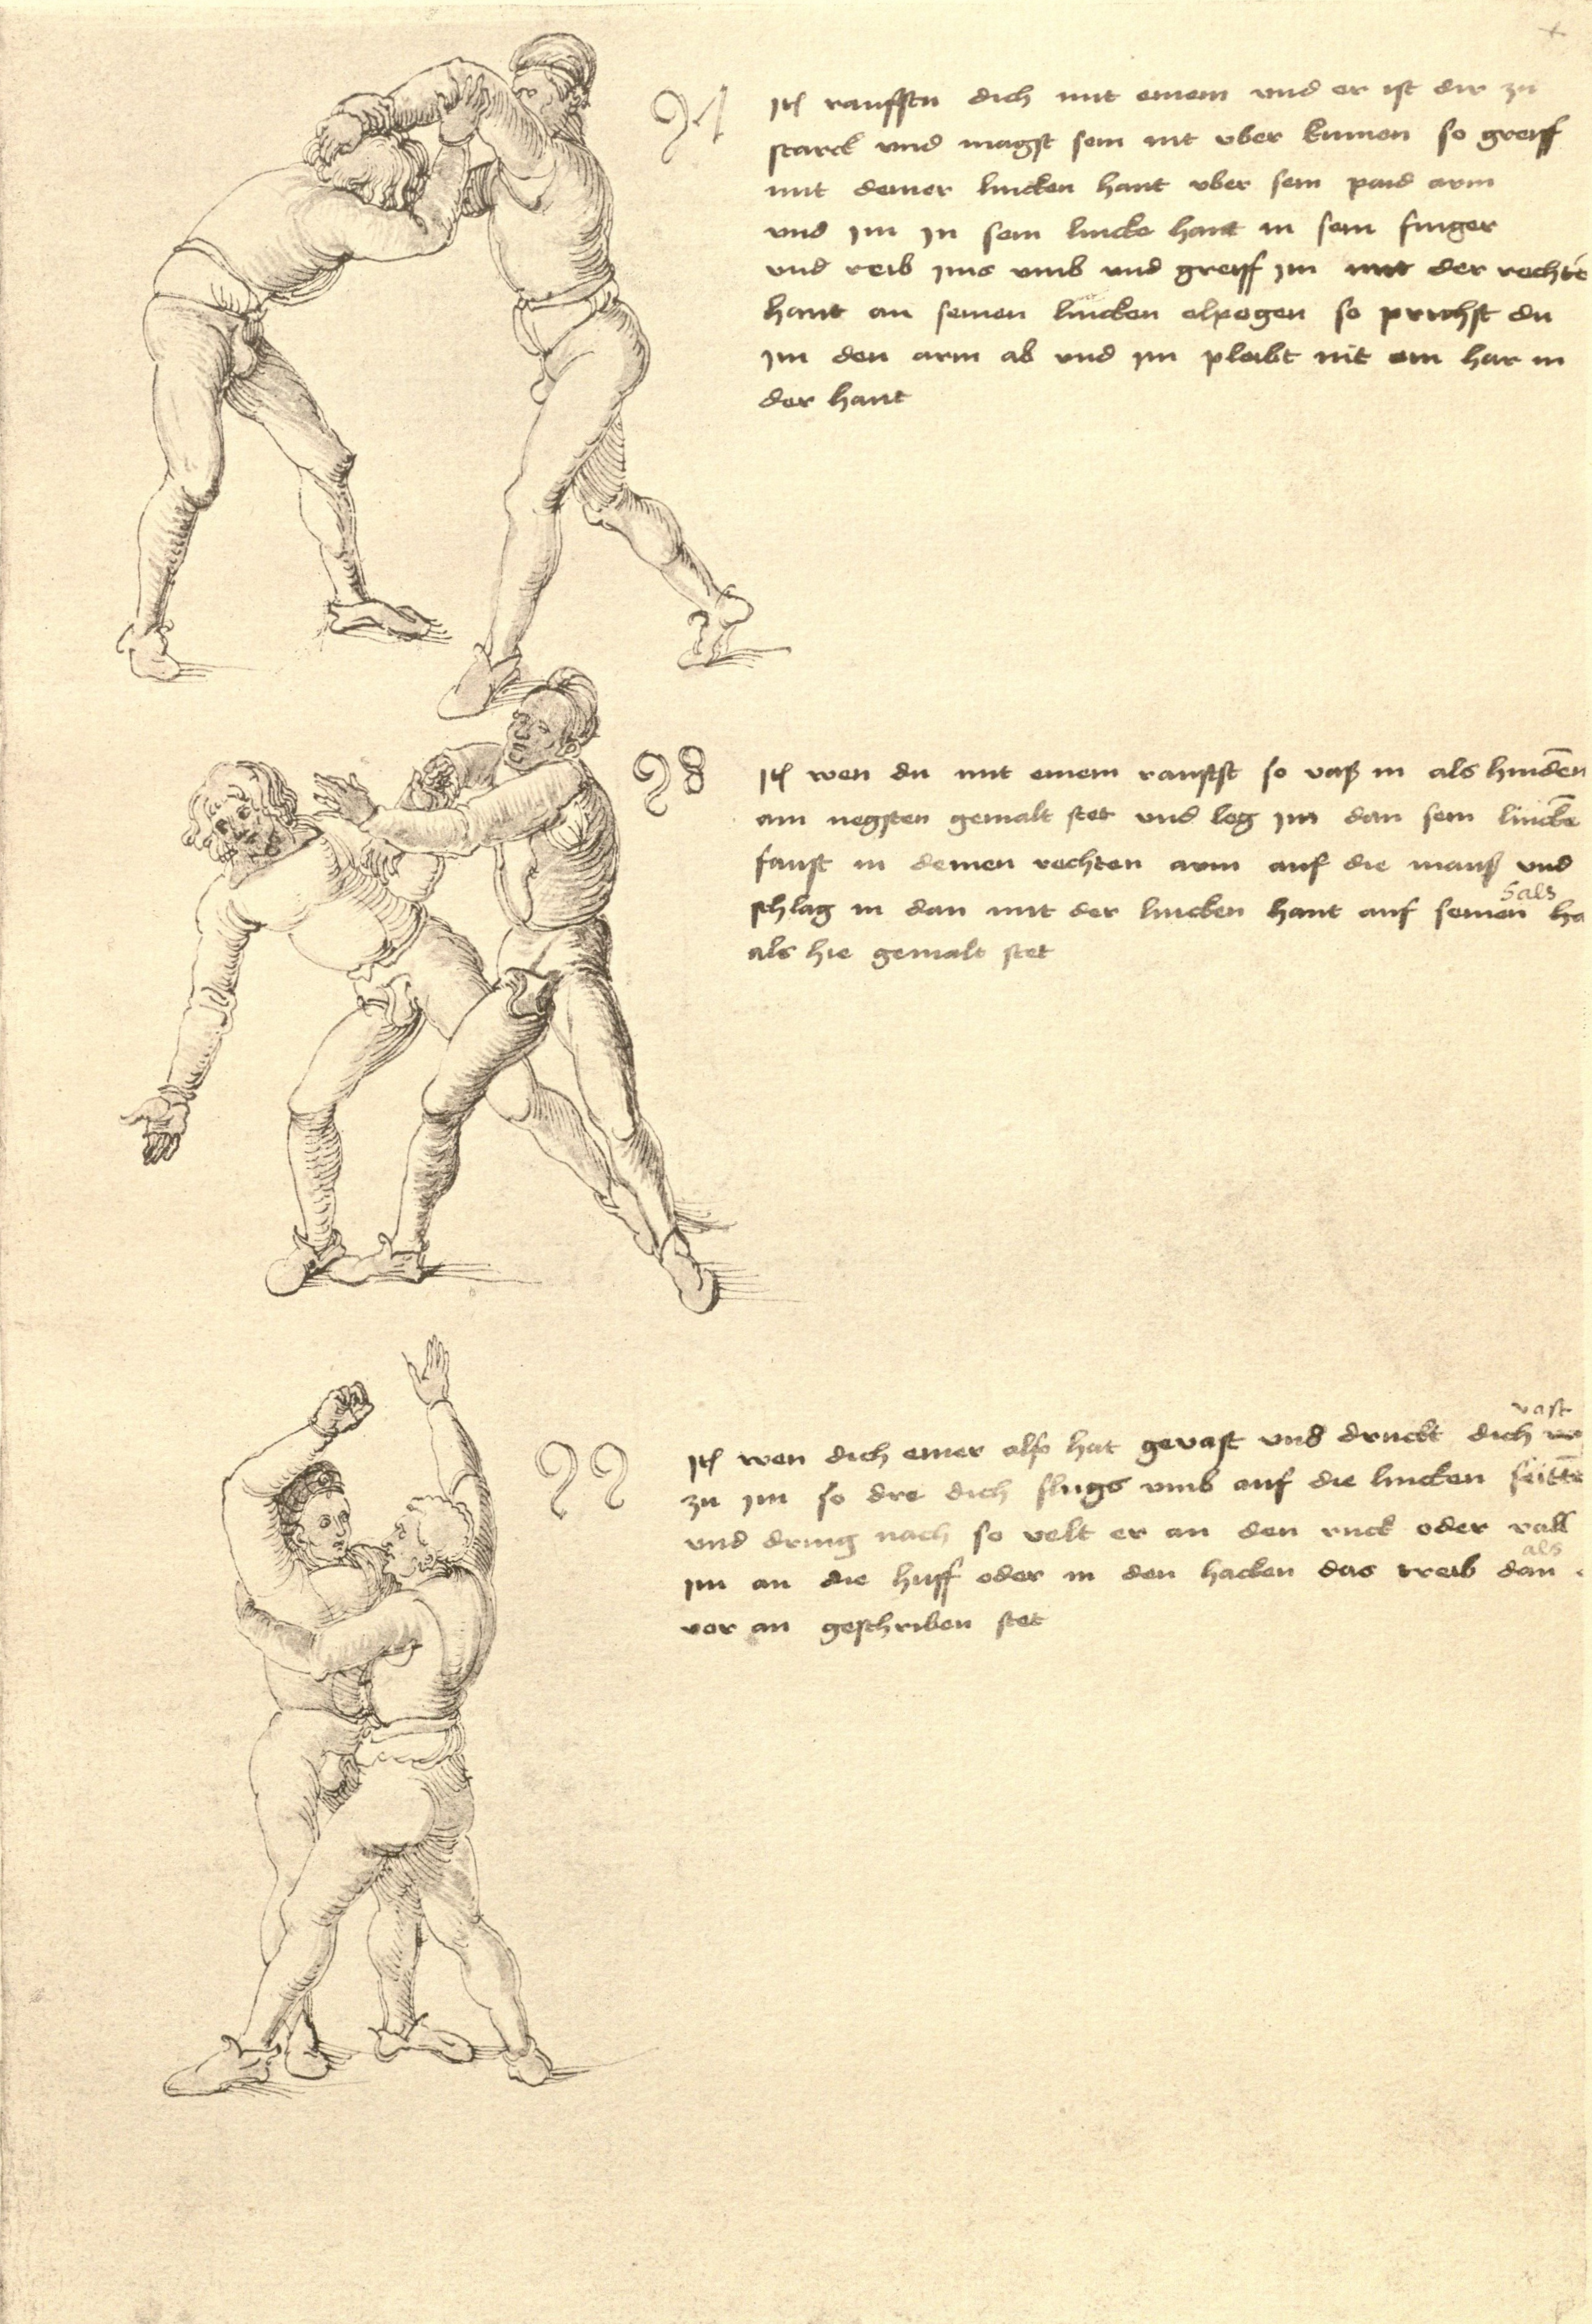 97
Itē rauffstu dich mit einem vnd er ist dir zu
starck vnd magst sein nit vber kumen so greiff
mit deiner lincken hant vber sein paid arm
vnd im in sein lincke hant in sein finger
vnd reib ims vmb vnd greiff im mit der rechtē
hant an seinen lincken elpogen so prichst du
im den arm ab vnd im pleibt nit ein har in
der hant
98
Itē wen du mit einem raufst so vaß in als hindēn
am negsten gemalt stet vnd leg im dan sein linckē
faust in deinen rechten arm auf die mauß vnd
hals
schlag in dan mit der lincken hant auf seinen ha
als hie gemalt stet
99
vast
Itē wen dich einer also hat gevast vnd druckt dich
zu im so dre dich flugs vmb auf die lincken seittē
vnd dring nach so velt er an den ruck oder vall
als
im an die huff oder in den hacken das treib dan
vor an geschriben stet